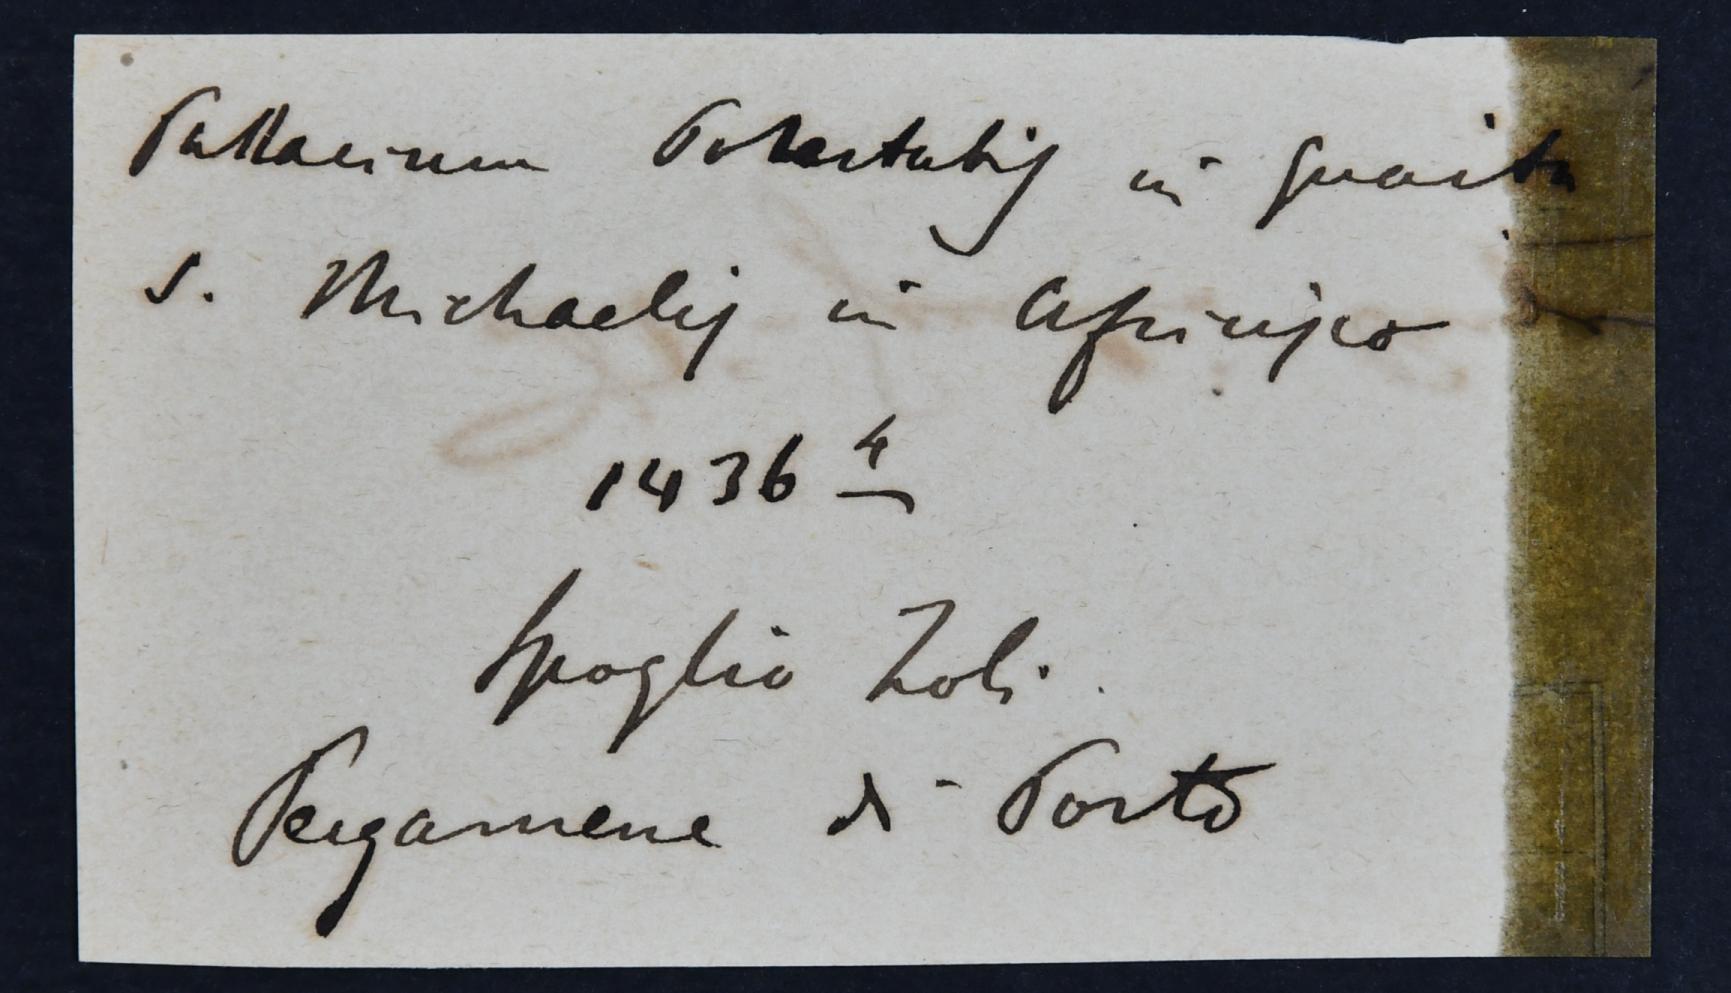 Pallacium Potestatis in guaita
S. Michaelis in Africisco
1436 4
Spoglio Zoli.
Pergamene di Porto